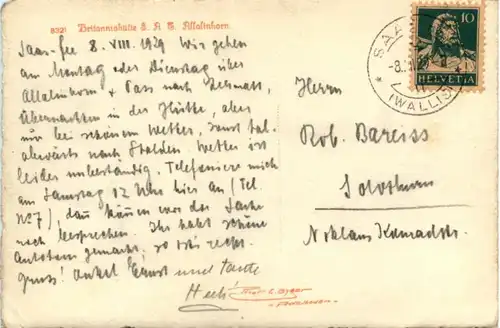 8321 Britanniahütte S. A. C. Allalinhorn.
Saas-Fee 8. VIII. 1929 Wir gehen
am Montag oder Dienstag über
Allalinhorn & Pass nach Zermatt,
Übernachten in der Hütte, aber
nur bei schönem Wetter, sonst tal-
abwärts nach Stalden. Wetter ist
leider unbeständig. Telefoniere mich
am Samstag 12 Uhr hier an (Tel.
No 7), dann können wir die Sache
noch besprechen. Ihr habt schöne
Autotour gemacht, so ists recht.
Gruss! Onkel Ernst und Tante
Hedi
10
HELVETIA
SAAS
(WALLIS)
Herrn
Rob. Bareiss
Solothurn
Niklaus Konradstr.